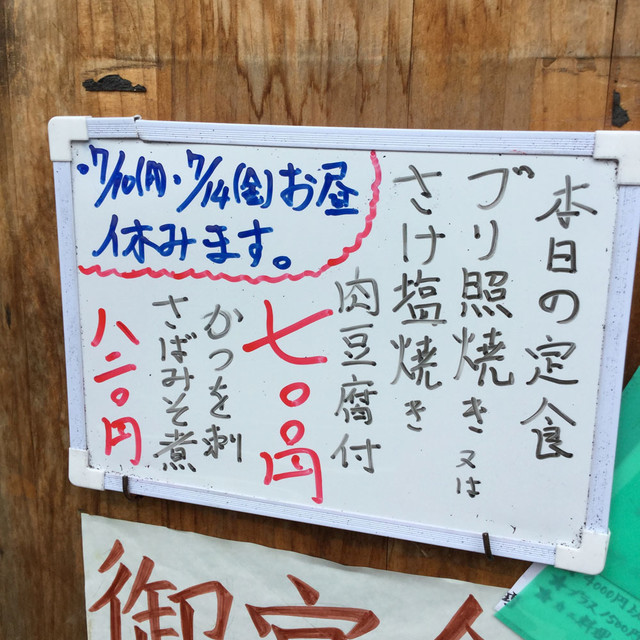 本日の定食
ブリ照焼き又は
さけ塩焼き
肉豆腐付
七〇〇円
かつを刺
さばみそ煮
八二〇円
・7/10(月)・7/14(金)お昼
休みます。
御定食